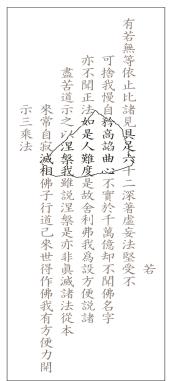 若
有若無等依止此諸見具足六十二深著虛妄法堅受不
可捨我慢自矜高諂曲心不實於千萬億劫不聞佛名字
亦不聞正法如是人難度是故舍利弗我為設方便說諸
盡苦道示之以涅槃我雖說涅槃是亦非真滅諸法從本
來常自寂滅相佛子行道已來世得作佛我有方便力開
示三乘法